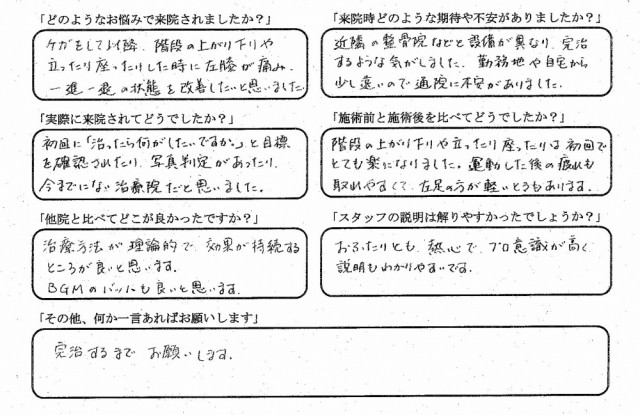 「どのようなお悩みで来院されましたか？」
ケガをして以降、階段の上がり下りや
立ったり座ったりした時に左膝が痛み、
一進一退の状態を改善したいと思いました
「来院時どのような期待や不安がありましたか？」
近隣の整骨院などと設備が異なり、完治
するような気がしました。勤務地や自宅から
少し遠いので通院に不安がありました。
「実際に来院されてどうでしたか？」
初回に「治ったら何がしたいですか。」と目標
を確認されたり、写真判定があったり、
今までにない治療院だと思いました。
「施術前と施術後を比べてどうでしたか？」
階段の上がり下りや立ったり座ったりは初回で
とても楽になりました。運動した後の疲れも
取れやすくて、左足の方が軽いときもあります。
「他院と比べてどこが良かったですか？」
治療方法が理論的で、効果が持続する
ところが良いと思います。
BGMの も良いと思います。
「スタッフの説明は解りやすかったでしょうか？」
おふたりとも、熱心で、プロ意識が高く
説明もわかりやすいです。
「その他、何か一言あればお願いします」
完治するまで お願いします。